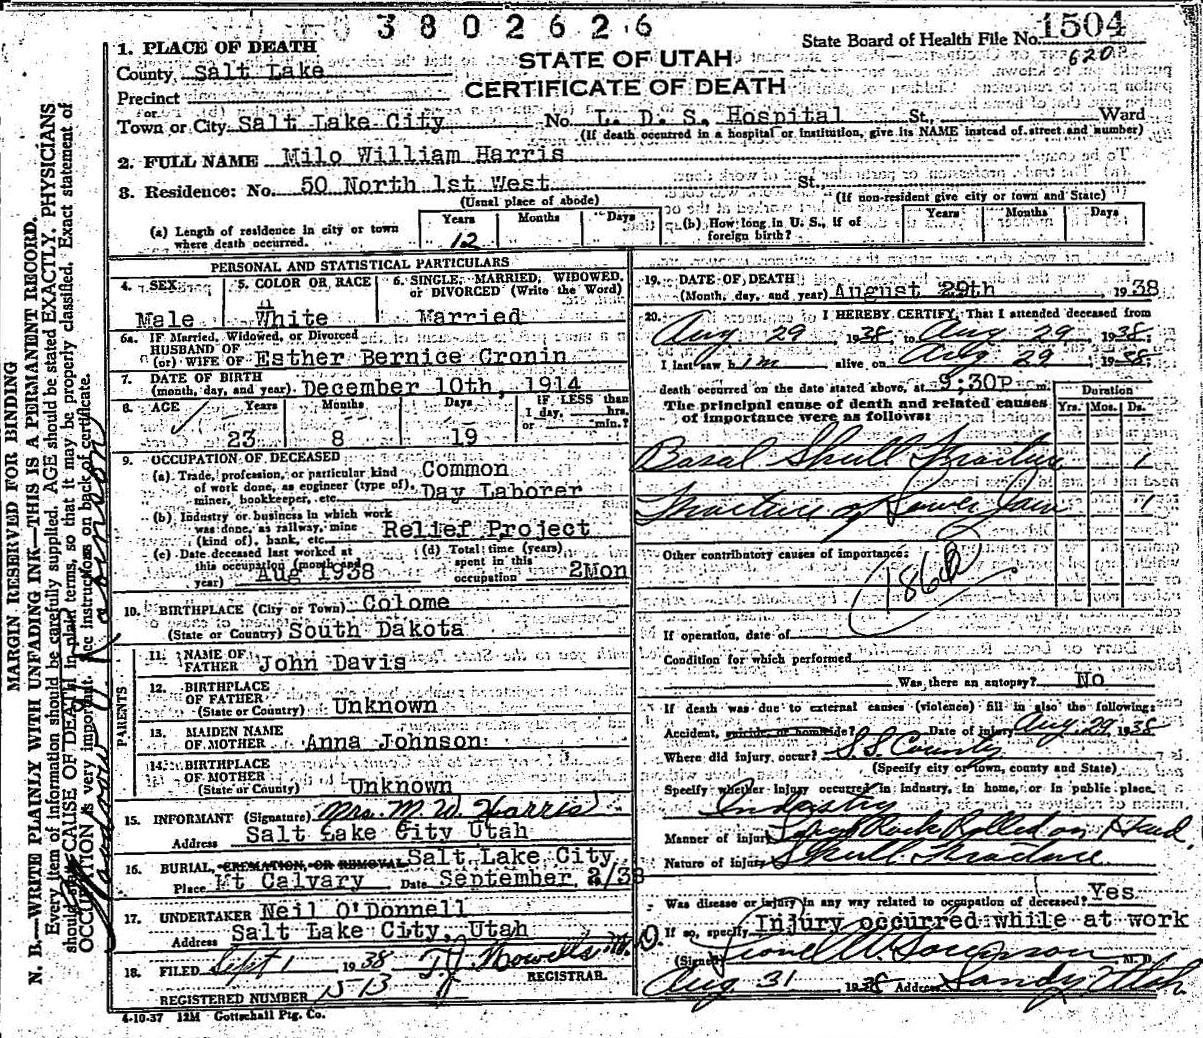 3802626
State Board of Health File No. 1504
620
1. PLACE OF DEATH
STATE OF UTAH
County Salt Lake
CERTIFICATE OF DEATH
Precinct
or
Town or City Salt Lake City No. L. D. S. Hospital St., Ward
(If death occurred in a hospital or institution, give its NAME instead of street and number)
2. FULL NAME Milo William Harris
3. Residence: No. 50 North 1st West St.
(Usual place of abode) (If non-resident give city or town and State)
(a) Length of residence in city or town where death occurred. Years 12 Months Days
(b) How long in U. S., if of foreign birth? Years Months Days
PERSONAL AND STATISTICAL PARTICULARS
4. SEX Male
5. COLOR OR RACE White
6. SINGLE, MARRIED, WIDOWED, or DIVORCED (Write the Word) Married
6a. IF Married, Widowed, or Divorced
HUSBAND OF
(or) WIFE OF Esther Bernice Cronin
7. DATE OF BIRTH
(month, day, and year) December 10th, 1914
8. AGE Years 23 Months 8 Days 19 IF LESS than 1 day, hrs. or min.?
9. OCCUPATION OF DECEASED
(a) Trade, profession, or particular kind of work done, as engineer (type of), miner, bookkeeper, etc. Common Day Laborer
(b) Industry or business in which work was done, as railway, mine (kind of), bank, etc. Relief Project
(c) Date deceased last worked at this occupation (month and year) Aug 1938
(d) Total time (years) spent in this occupation 2Mon
10. BIRTHPLACE (City or Town) Colome
(State or Country) South Dakota
PARENTS
11. NAME OF FATHER John Davis
12. BIRTHPLACE OF FATHER (State or Country) Unknown
13. MAIDEN NAME OF MOTHER Anna Johnson
14. BIRTHPLACE OF MOTHER (State or Country) Unknown
15. INFORMANT (Signature) Mrs. M. W. Harris
Address Salt Lake City Utah
16. BURIAL, CREMATION, OR REMOVAL Salt Lake City
Place Mt Calvary Date September 2/38
17. UNDERTAKER Neil O'Donnell
Address Salt Lake City, Utah
18. FILED Sept 1 1938 REGISTRAR.
REGISTERED NUMBER 1513
4-10-37 12M Gottschall Ptg. Co.
19. DATE OF DEATH
(Month, day, and year) August 29th 1938
20. I HEREBY CERTIFY, That I attended deceased from
Aug 29 1938, to Aug 29 1938,
I last saw him alive on Aug 29 1938
death occurred on the date stated above, at 9:30P m.
The principal cause of death and related causes of importance were as follows:
Duration
Yrs. Mos. Ds.
Basal Skull Fracture 1
Fracture of Lower Jaw 1
Other contributory causes of importance:
If operation, date of
Condition for which performed
Was there an autopsy? No
If death was due to external causes (violence) fill in also the following:
Accident, suicide, or homicide? Date of injury Aug. 29, 1938
Where did injury occur? S L County
(Specify city or town, county and State)
Specify whether injury occurred in industry, in home, or in public place.
Industry
Manner of injury Large Rock Rolled on Head
Nature of injury Skull Fracture
Was disease or injury in any way related to occupation of deceased? Yes
If so, specify Injury occurred while at work
(Signed) M. D.
Aug 31 1938 Address Sandy Utah
MARGIN RESERVED FOR BINDING
N. B.—WRITE PLAINLY WITH UNFADING INK—THIS IS A PERMANENT RECORD.
Every item of information should be carefully supplied. AGE should be stated EXACTLY. PHYSICIANS
should state CAUSE OF DEATH in plain terms, so that it may be properly classified. Exact statement of
OCCUPATION is very important. See instructions on back of certificate.